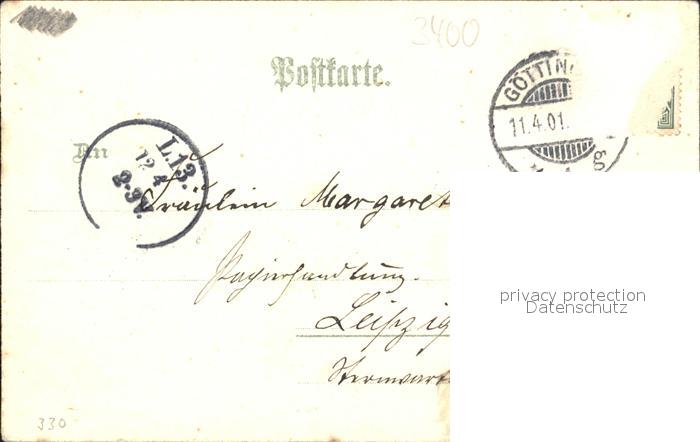 3400
Postkarte.
GÖTTIN
11.4.01.
An
L.13.
12 4
Fräulein Margaret
Papierhandlung.
Leipzig
Sternwart
privacy protection
Datenschutz
330